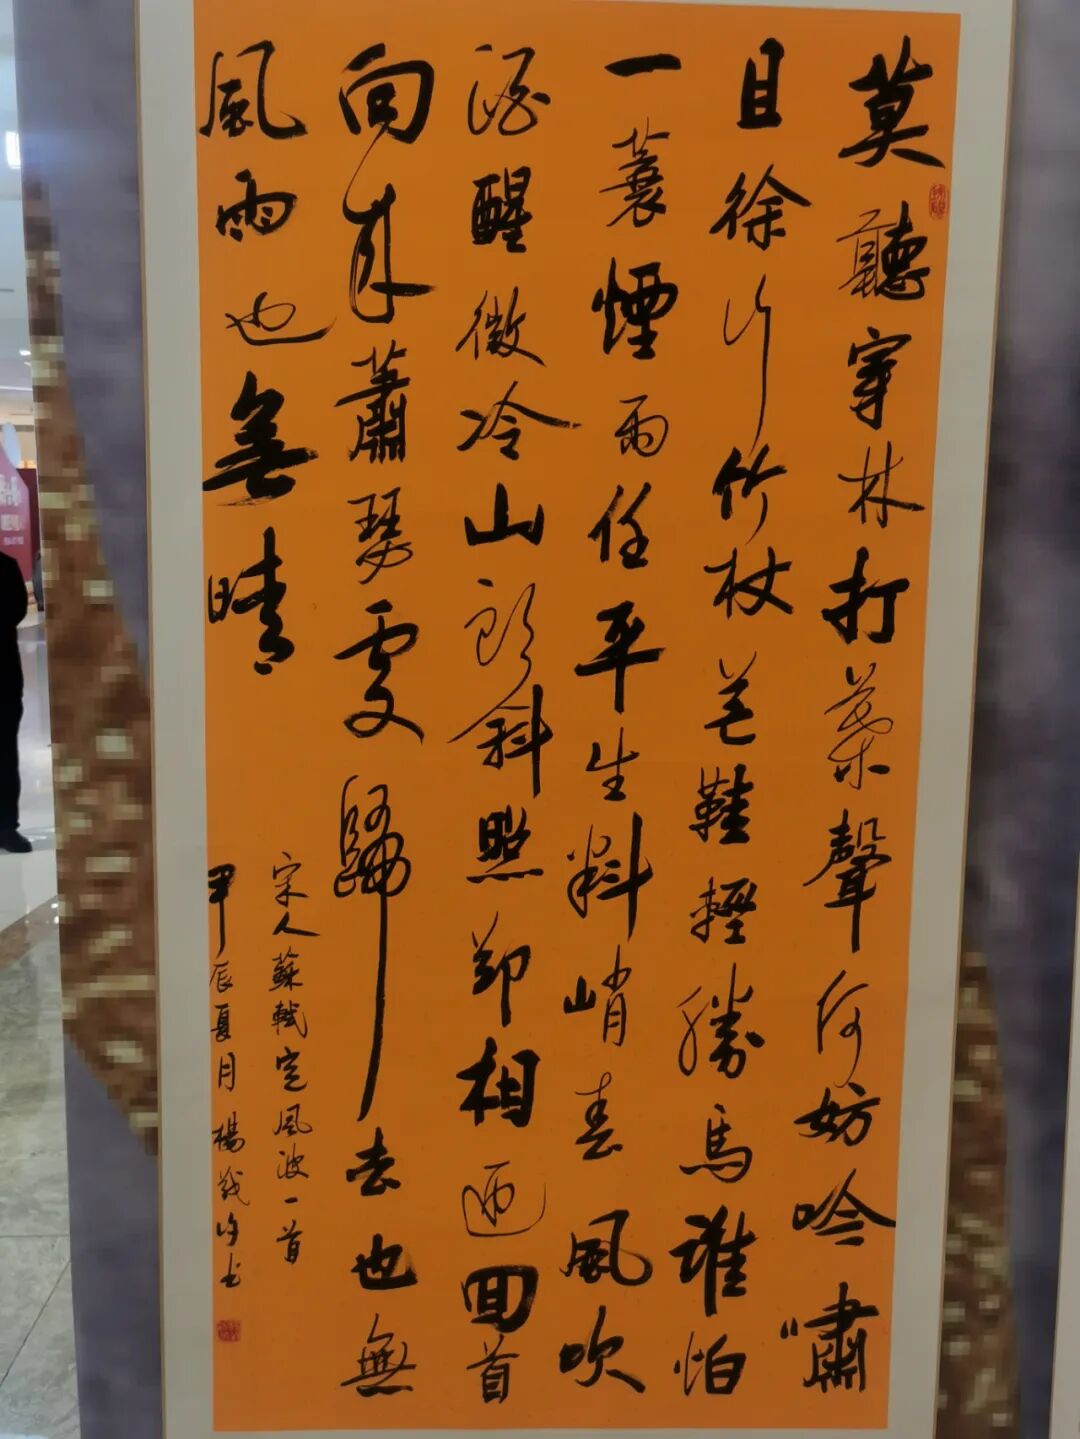 莫聽穿林打葉聲何妨吟嘯
且徐行竹杖芒鞋輕勝馬誰怕
一蓑煙雨任平生料峭春風吹
酒醒微冷山頭斜照卻相迎回首
向來蕭瑟處歸去也無
風雨也無晴
宋人蘇軾定風波一首
甲辰夏月楊書